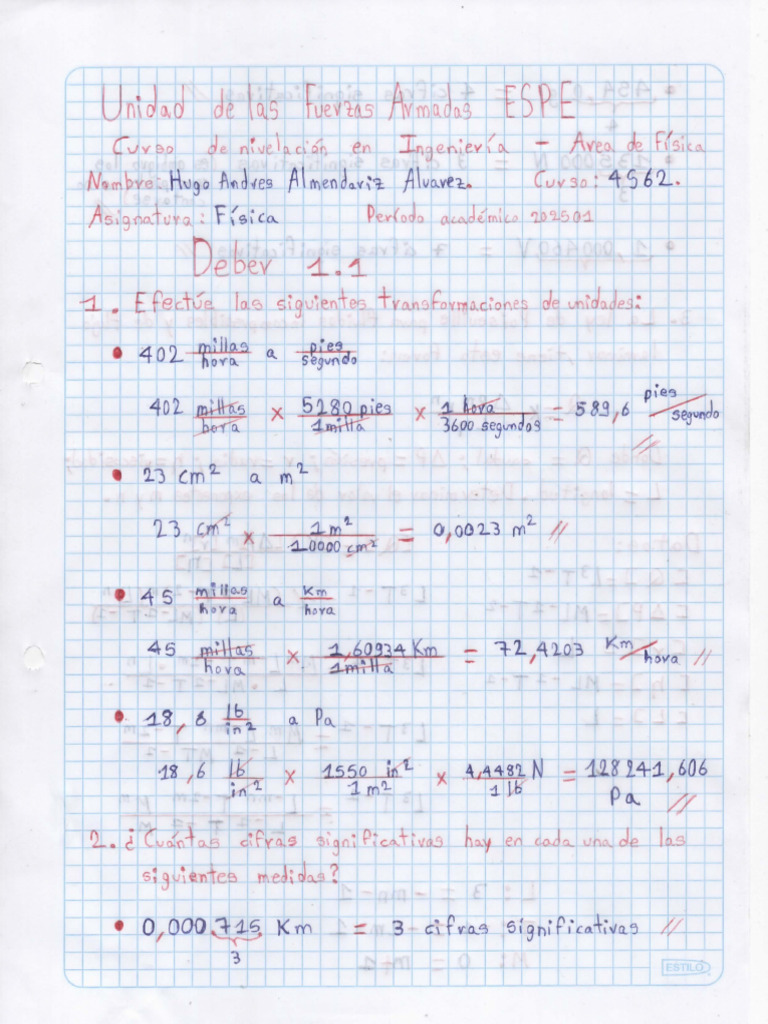 Unidad de las Fuerzas Armadas ESPE
Curso de nivelación en Ingeniería - Area de Física
Nombre: Hugo Andres Almendariz Alvarez. Curso: 4562.
Asignatura: Física Período académico 202501
Deber 1.1
1. Efectúe las siguientes transformaciones de unidades:
• 402 millas/hora a pies/segundo
402 millas/hora × 5280 pies/1 milla × 1 hora/3600 segundos = 589,6 pies/segundo //
• 23 cm² a m²
23 cm² × 1 m²/10000 cm² = 0,0023 m² //
• 45 millas/hora a Km/hora
45 millas/hora × 1,60934 Km/1 milla = 72,4203 Km/hora //
• 18,6 lb/in² a Pa
18,6 lb/in² × 1550 in²/1 m² × 4,4482 N/1 lb = 128241,606
Pa //
2. ¿Cuántas cifras significativas hay en cada una de las
siguientes medidas?
• 0,000 715 Km = 3 cifras significativas //
3
ESTILO